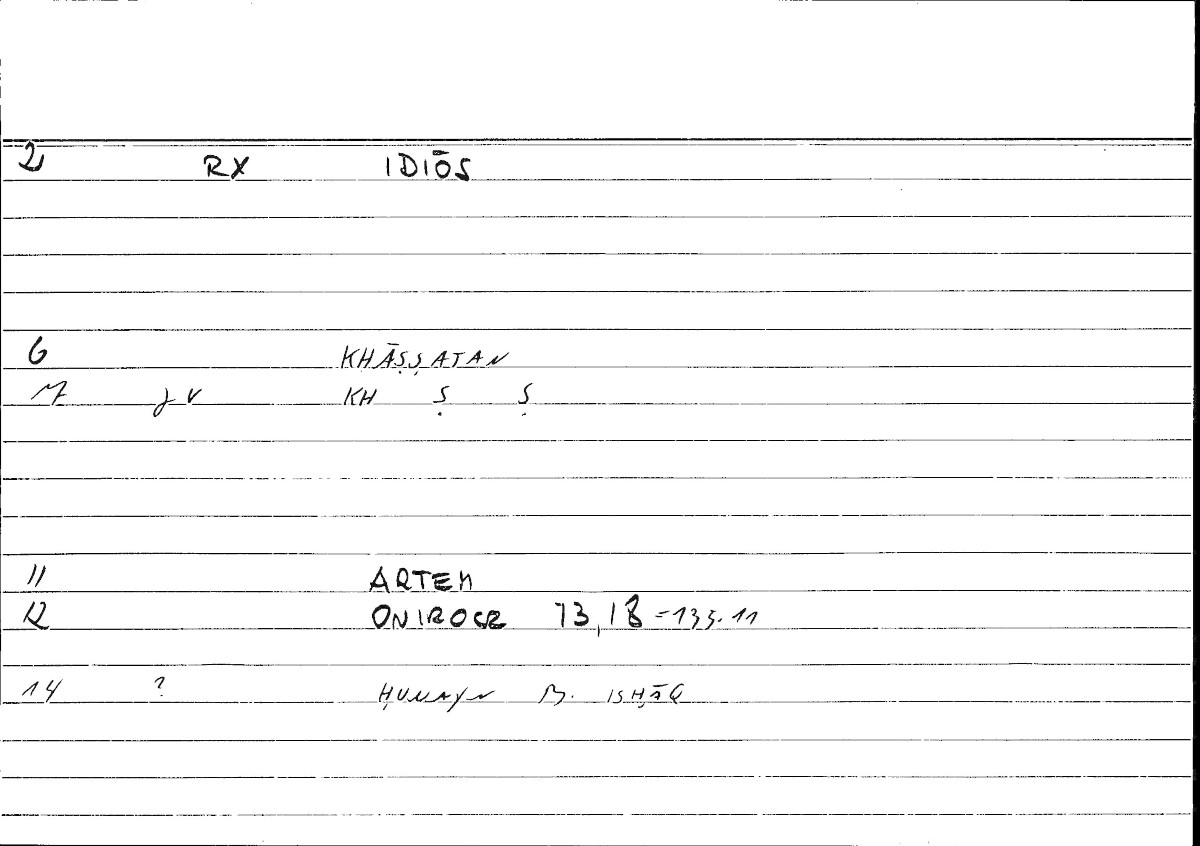 2 RX IDIŌS
6 KHĀṢṢATAN
KH Ṣ Ṣ
11 ARTEM
12 ONIROCR 73,18 = 135.11
14 ? ḤUNAYN B. ISḤĀQ